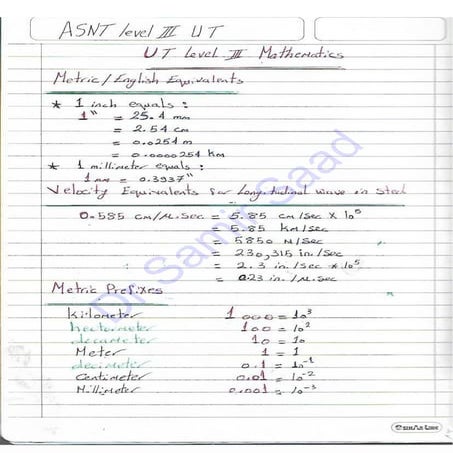 ASNT level III UT
UT Level III Mathematics
Metric/English Equivalents
* 1 inch equals :
1" = 25.4 mm
= 2.54 cm
= 0.0254 m
= 0.0000254 Km
* 1 millimeter equals :
1 mm = 0.3937"
Velocity Equivalents for Longitudinal wave in Steel
0.585 cm/M.sec = 5.85 cm/sec x 10⁵
= 5.85 km/sec
= 5850 M/sec
= 230,315 in./sec
= 2.3 in./sec * 10⁵
= 0.23 in./M.sec
Metric Prefixes
Kilometer 1000 = 10³
hectometer 100 = 10²
decameter 10 = 10
Meter 1 = 1
decimeter 0.1 = 10⁻¹
Centimeter 0.01 = 10⁻²
Millimeter 0.001 = 10⁻³
Dr Samir Saad